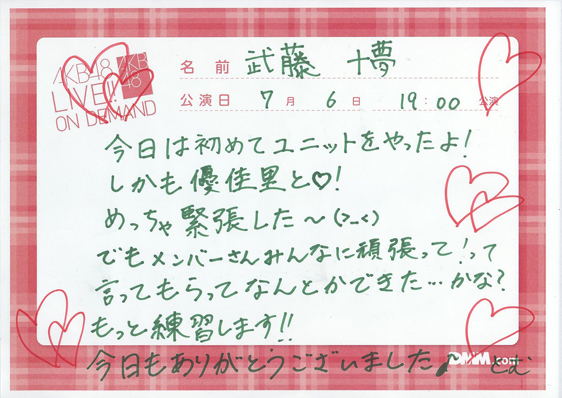 AKB48
LIVE!!
ON DEMAND
AKB
48
名前 武藤 十夢
公演日 7月 6日 19:00 公演
今日は初めてユニットをやったよ!
しかも優佳里と♡!
めっちゃ緊張した〜(>_<)
でもメンバーさんみんなに頑張って!って
言ってもらってなんとかできた…かな?
もっと練習します!!
今日もありがとうございました♪ とむ
DMM.com